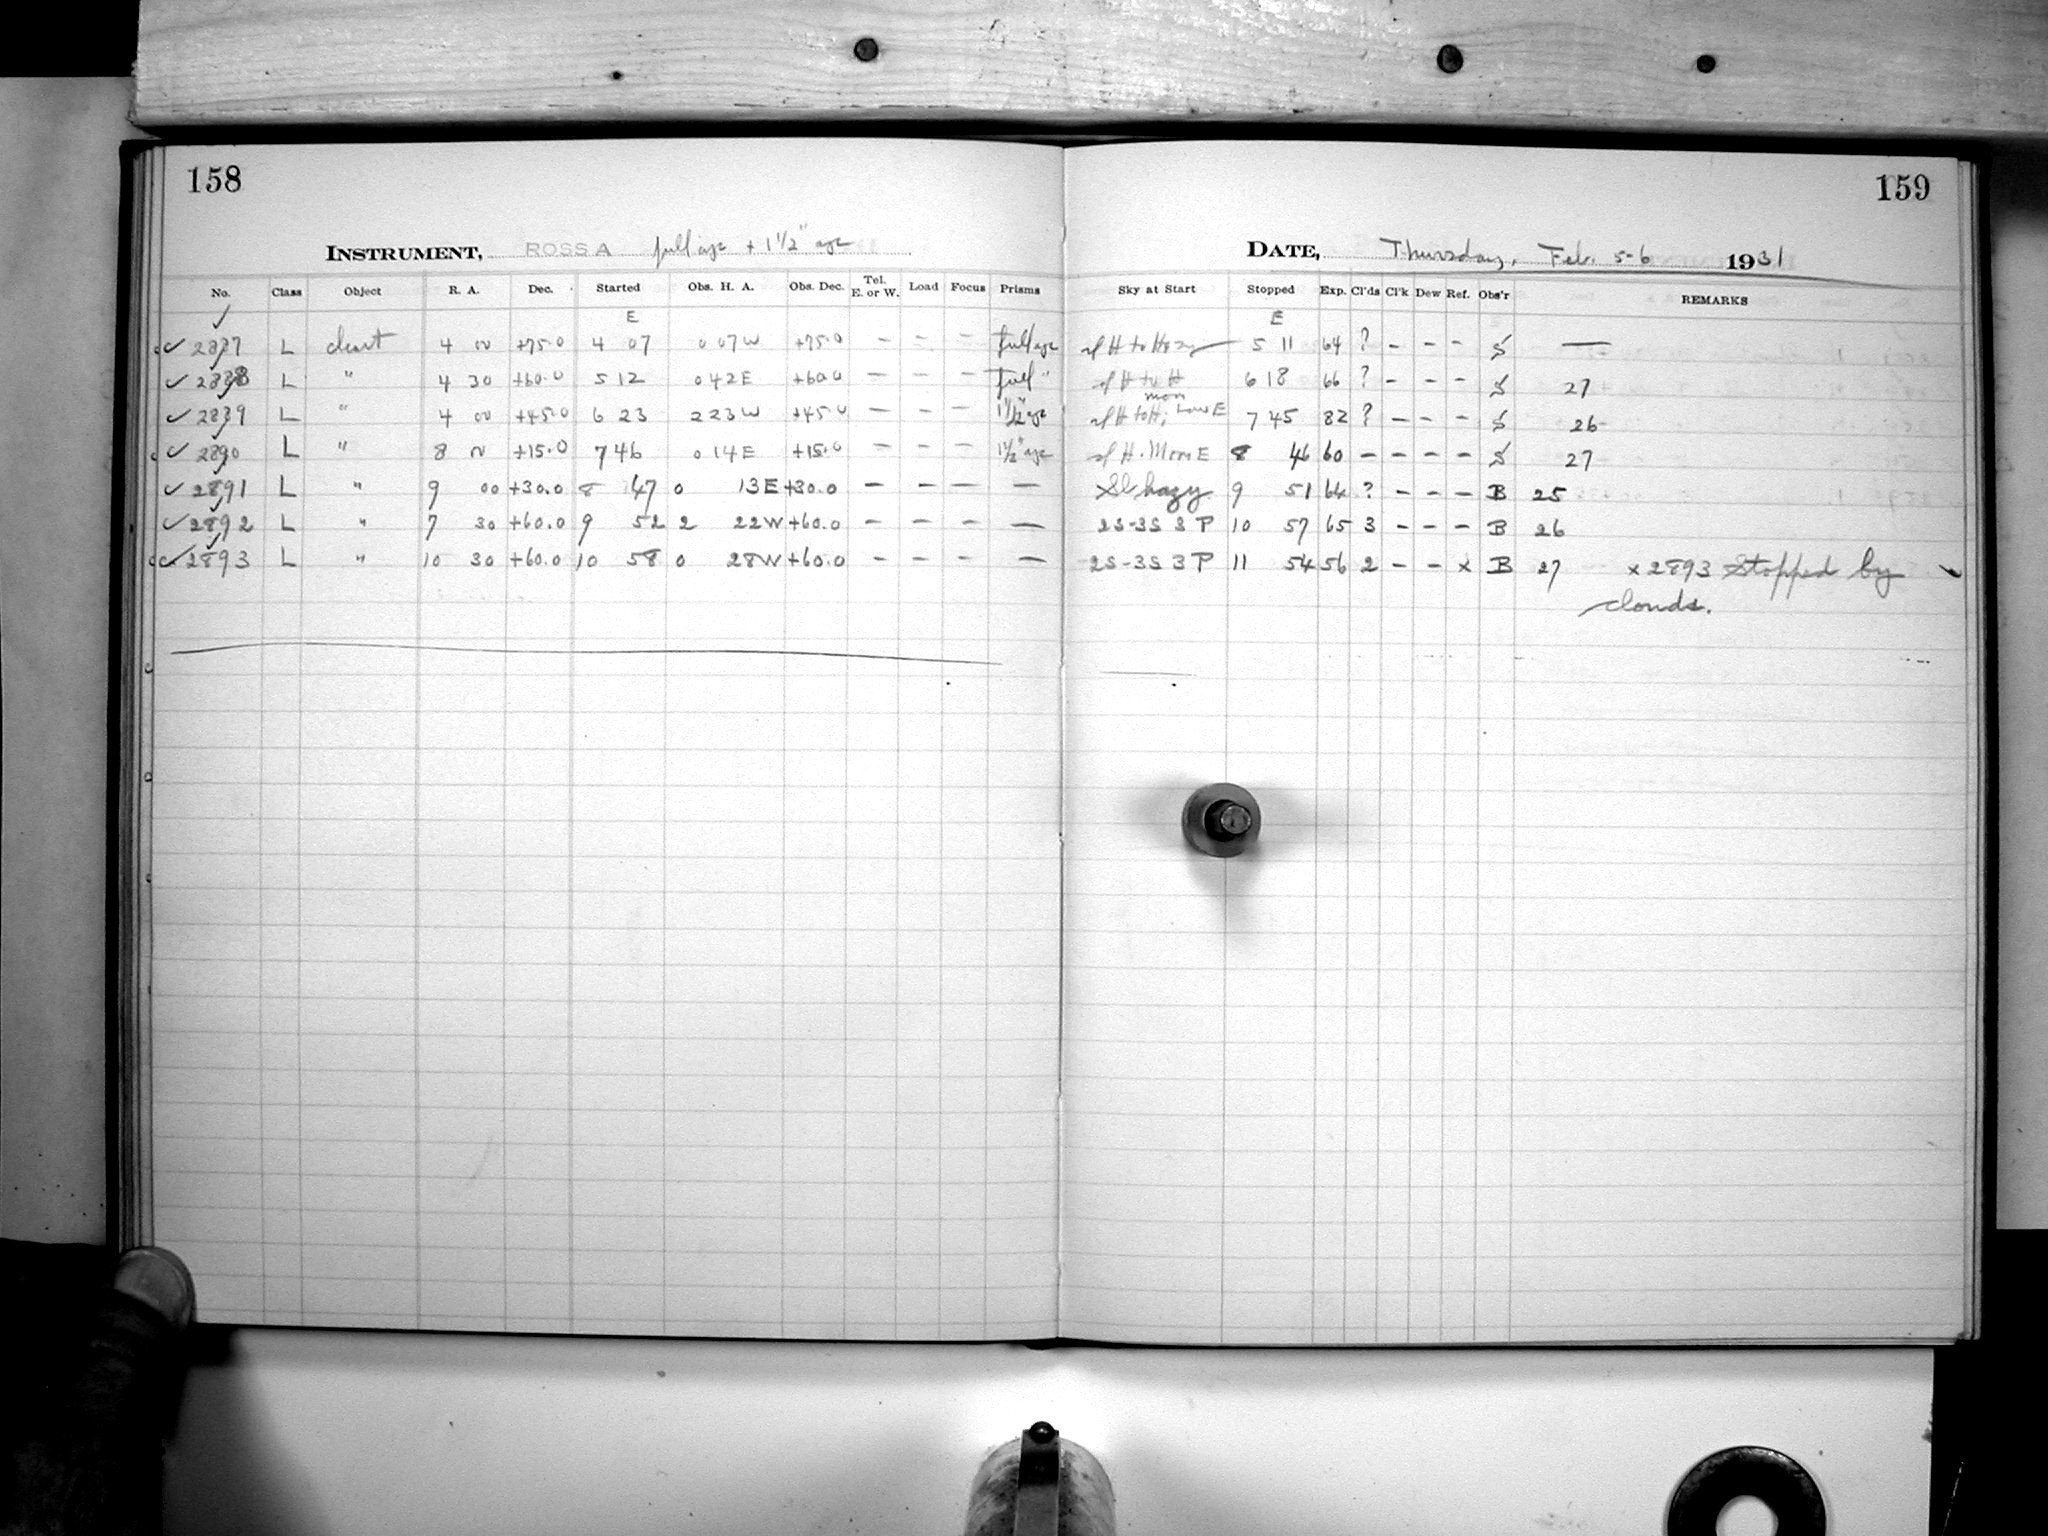 158
INSTRUMENT, ROSS A full ape + 1 1/2" ape
No. Class Object R. A. Dec. Started Obs. H. A. Obs. Dec. Tel. E. or W. Load Focus Prisms
E
✓ 2887 L chart 4 00 +75.0 4 07 0 07 W +75.0 - - - full ape
✓ 2888 L " 4 30 +60.0 5 12 0 42 E +60.0 - - - full "
✓ 2889 L " 4 00 +45.0 6 23 2 23 W +45.0 - - - 1 1/2" ape
✓ 2890 L " 8 00 +15.0 7 46 0 14 E +15.0 - - - 1 1/2" ape
✓ 2891 L " 9 00 +30.0 8 47 0 13 E +30.0 - - - -
✓ 2892 L " 7 30 +60.0 9 52 2 22 W +60.0 - - - -
✓ 2893 L " 10 30 +60.0 10 58 0 28 W +60.0 - - - -
159
DATE, Thursday, Feb. 5-6 1931
Sky at Start Stopped Exp. Cl'ds Cl'k Dew Ref. Obs'r REMARKS
E
sl H to Hazy 5 11 64 ? - - - S —
sl H to H 6 18 66 ? - - - S 27
sl H to H, moon Low E 7 45 82 ? - - - S 26
sl H. Moon E 8 46 60 - - - - S 27
Sl hazy 9 51 64 ? - - - B 25
2S-3S 3 P 10 57 65 3 - - - B 26
2S-3S 3 P 11 54 56 2 - - x B 27 x 2893 Stopped by
clouds.